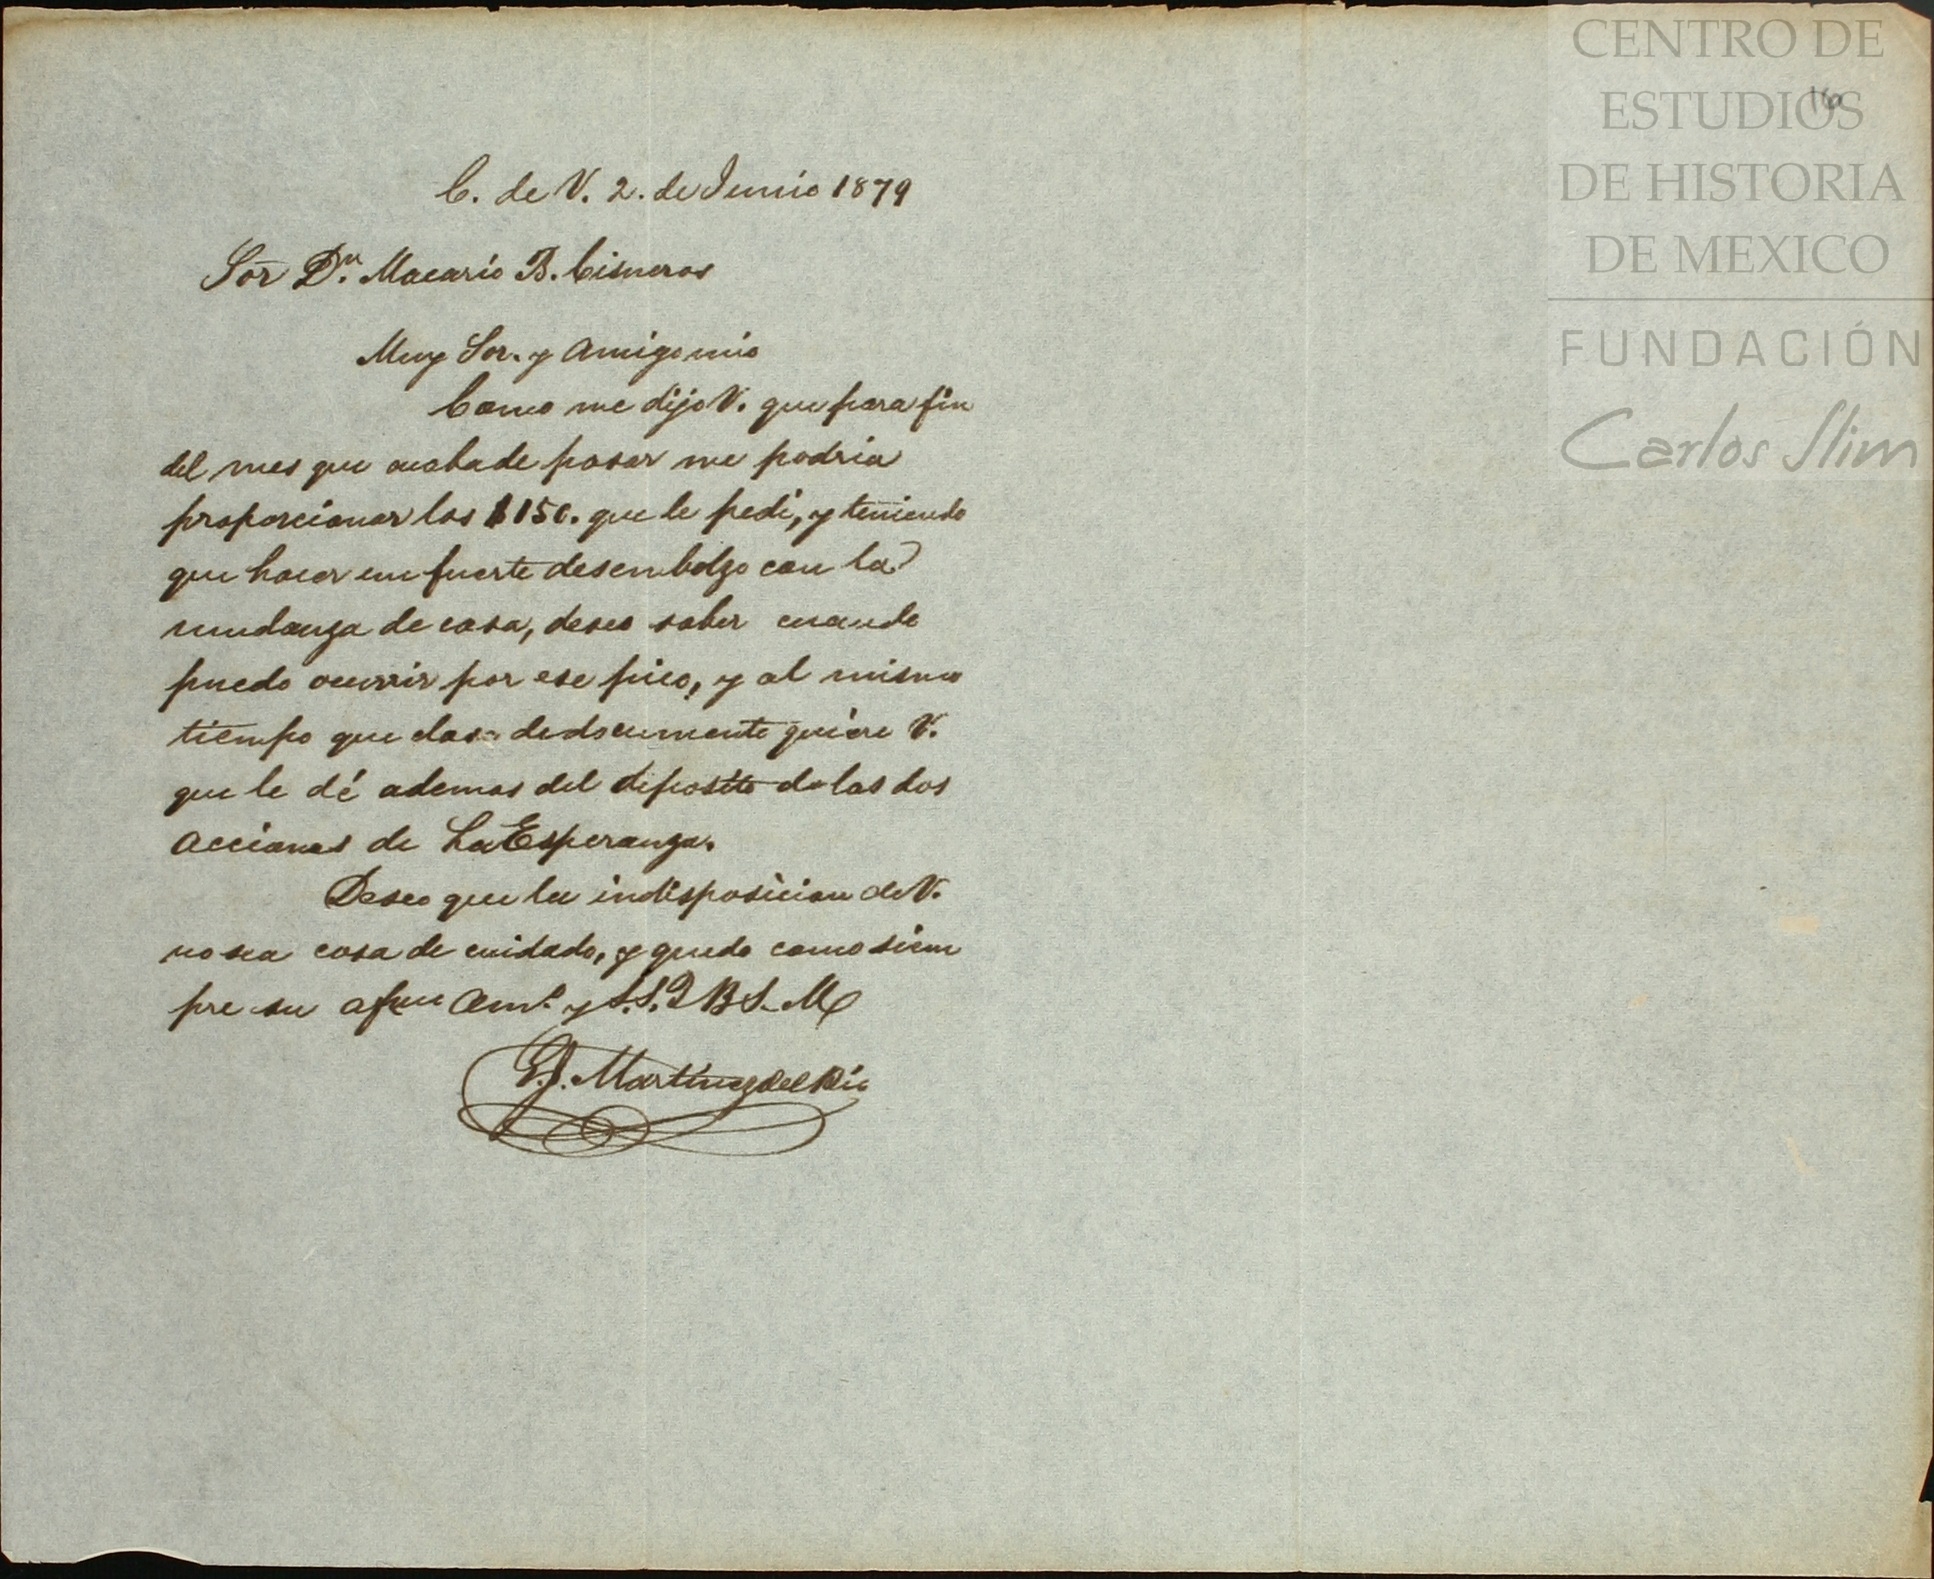 CENTRO DE
ESTUDIOS
DE HISTORIA
DE MEXICO
FUNDACIÓN
Carlos Slim
160
C. de V. 2. de Junio 1879
Sor Dn. Macario B. Cisneros
Muy Sor. y Amigo mio
Como me dijo V. que para fin
del mes que acaba de pasar me podria
proporcionar los $150. que le pedi, y teniendo
que hacer un fuerte desembolzo con la
mudanza de casa, deseo saber cuando
puedo ocurrir por ese pico, y al mismo
tiempo que clase de documento quiere V.
que le dé ademas del deposito de las dos
acciones de La Esperanza.
Deseo que la indisposicion de V.
no sea cosa de cuidado, y quedo como siem
pre su afmo Amo. y S.S.Q B S. M
J. Martinez del Rio